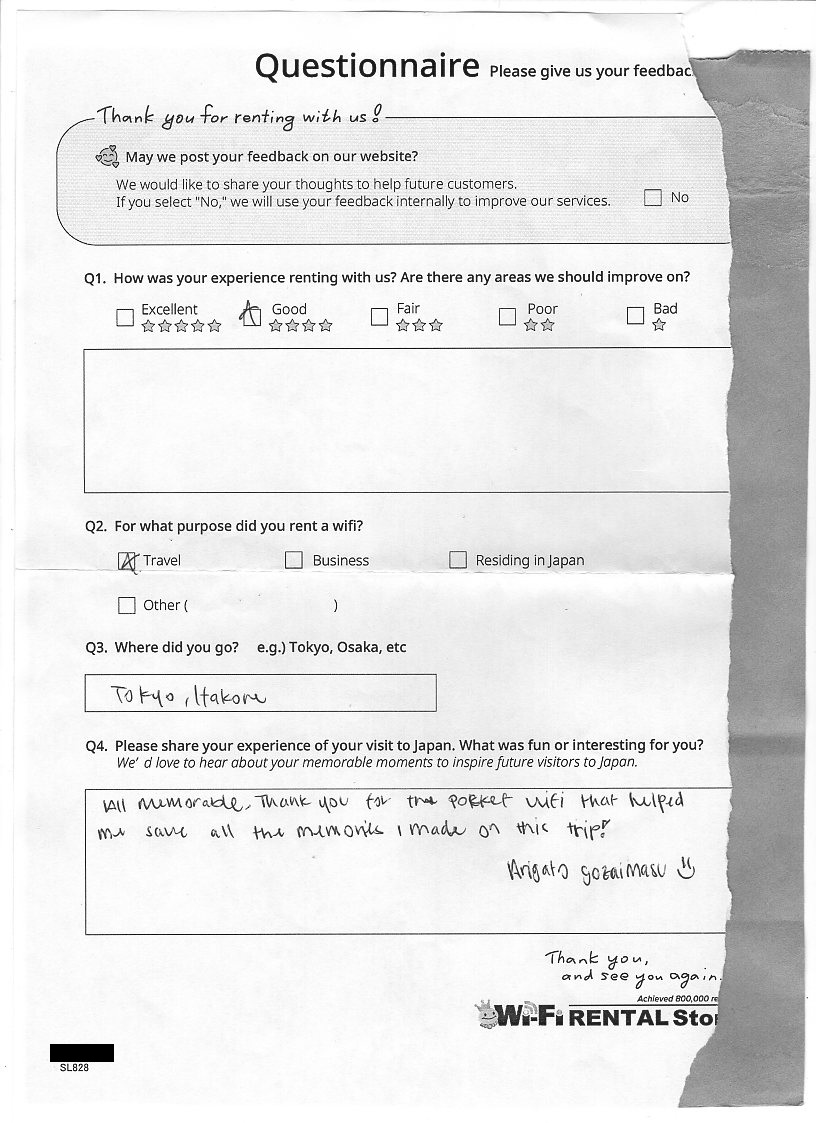 Questionnaire Please give us your feedbac
Thank you for renting with us!
May we post your feedback on our website?
We would like to share your thoughts to help future customers.
If you select "No," we will use your feedback internally to improve our services.
No
Q1. How was your experience renting with us? Are there any areas we should improve on?
Excellent Good Fair Poor Bad
☆☆☆☆☆ ☆☆☆☆ ☆☆☆ ☆☆ ☆
Q2. For what purpose did you rent a wifi?
Travel Business Residing in Japan
Other ( )
Q3. Where did you go? e.g.) Tokyo, Osaka, etc
Tokyo, Hakone
Q4. Please share your experience of your visit to Japan. What was fun or interesting for you?
We'd love to hear about your memorable moments to inspire future visitors to Japan.
All memorable, Thank you for the pocket wifi that helped
me save all the memories I made on this trip!
Arigato gozaimasu
Thank you,
and see you again.
Achieved 800,000 re
Wi-Fi RENTAL Sto
SL828